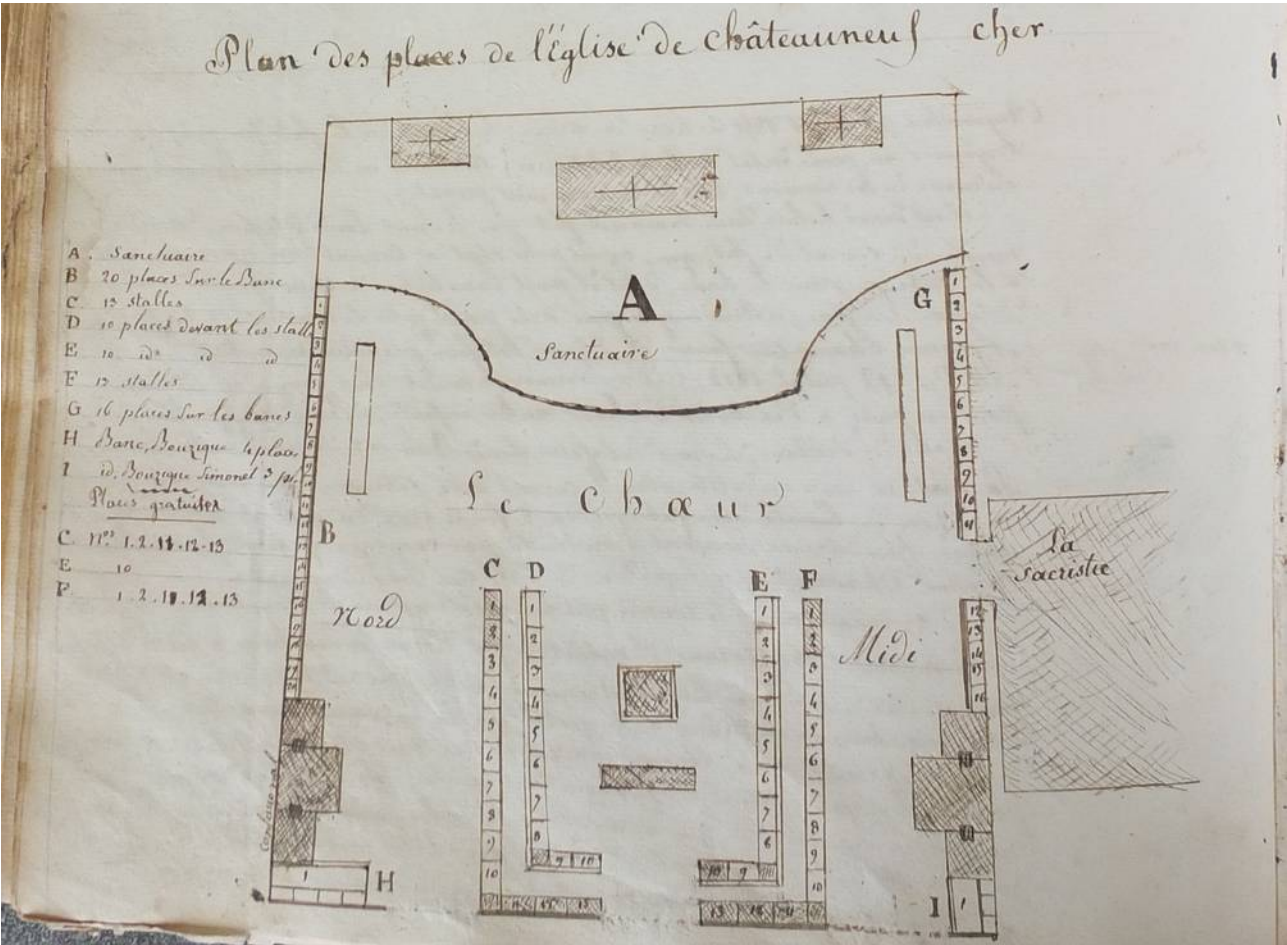 Plan des places de l'Église de Châteauneuf cher
A. Sanctuaire
B 20 places Sur le Banc
C. 13 stalles
D 10 places devant les stall
E 10 id id id
F 13 stalles
G 16 places Sur les bancs
H Banc, Bouzique 4 places
I id. Bouzique Simonet 3 pl.
Places gratuites
C. nos 1.2.11.12.13
E 10
F. 1.2.11.12.13
A
Sanctuaire
G
1
2
3
4
5
6
7
8
9
10
11
Le chœur
B
C D E F
Nord
Midi
La
Sacristie
1 2 3 4 5 6 7 8 9 10
1 2 3 4 5 6 7 8
9 10
1 2 3 4 5 6 7 8
10 9
1 2 3 4 5 6 7 8 9 10
13 12 11
12
13
14
15
16
1 H
I 1